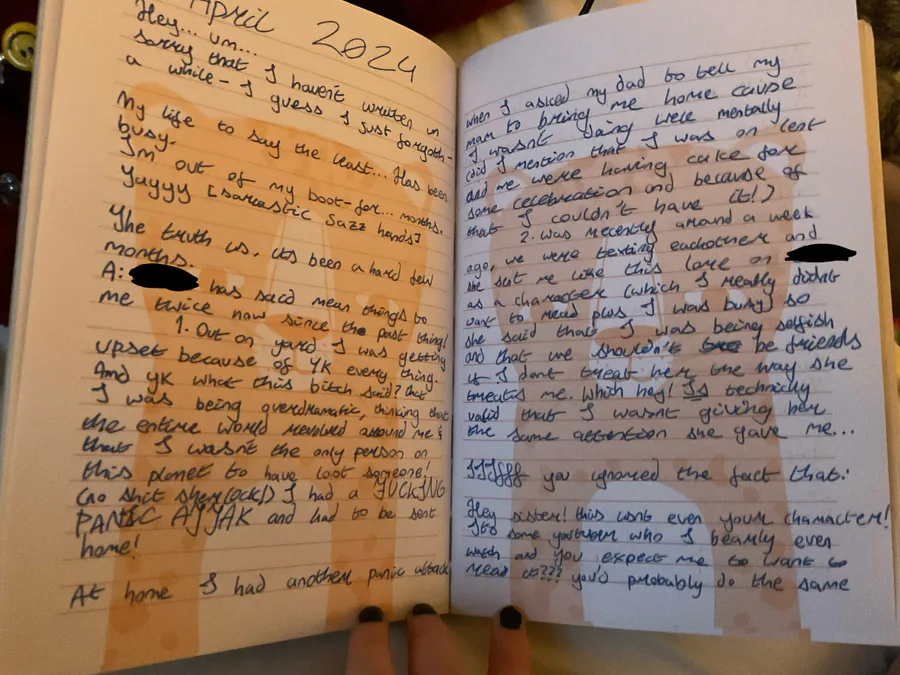 April 2024
Hey... um...
sorry that I haven't written in
a while- I guess I just forgoth-
My life to say the least... Has been
busy.
Im out of my boot-for... months.
Yayyy [sarcastic Jazz hands]
The truth is, its been a hard few
months.
A: has said mean things to
me twice now since the past thing!
1. Out on yard I was getting
upset because of YK every thing.
And yk what this bitch said? that
I was being overdramatic, thinking that
the entire world revolved around me &
that I wasn't the only person on
this planet to have lost someone!
(no shit sherlock!) I had a FUCKING
PANIC ATTAK and had to be sent
home!
At home I had another panic attack
when I asked my dad to tell my
mam to bring me home cause
I wasn't doing well mentally
(did I mention that I was on lent
and we were having cake for
some celebration and because of
that I couldn't have it!)
2. was recently around a week
ago, we were texting eachother and
she sat me like this lore on
as a character (which I really didnt
want to read plus I was busy) so
she said that I was being selfish
and that we shouldn't be friends
if I dont treat her the way she
treats me. Which hey! Is technicly
valid that I wasnt giving her
the same attention she gave me...
IIIffff you ignored the fact that:
Hey sister! this isnt even your character!
Its some youtuber who I bearly even
watch and you expect me to want to
read it??? you'd probably do the same